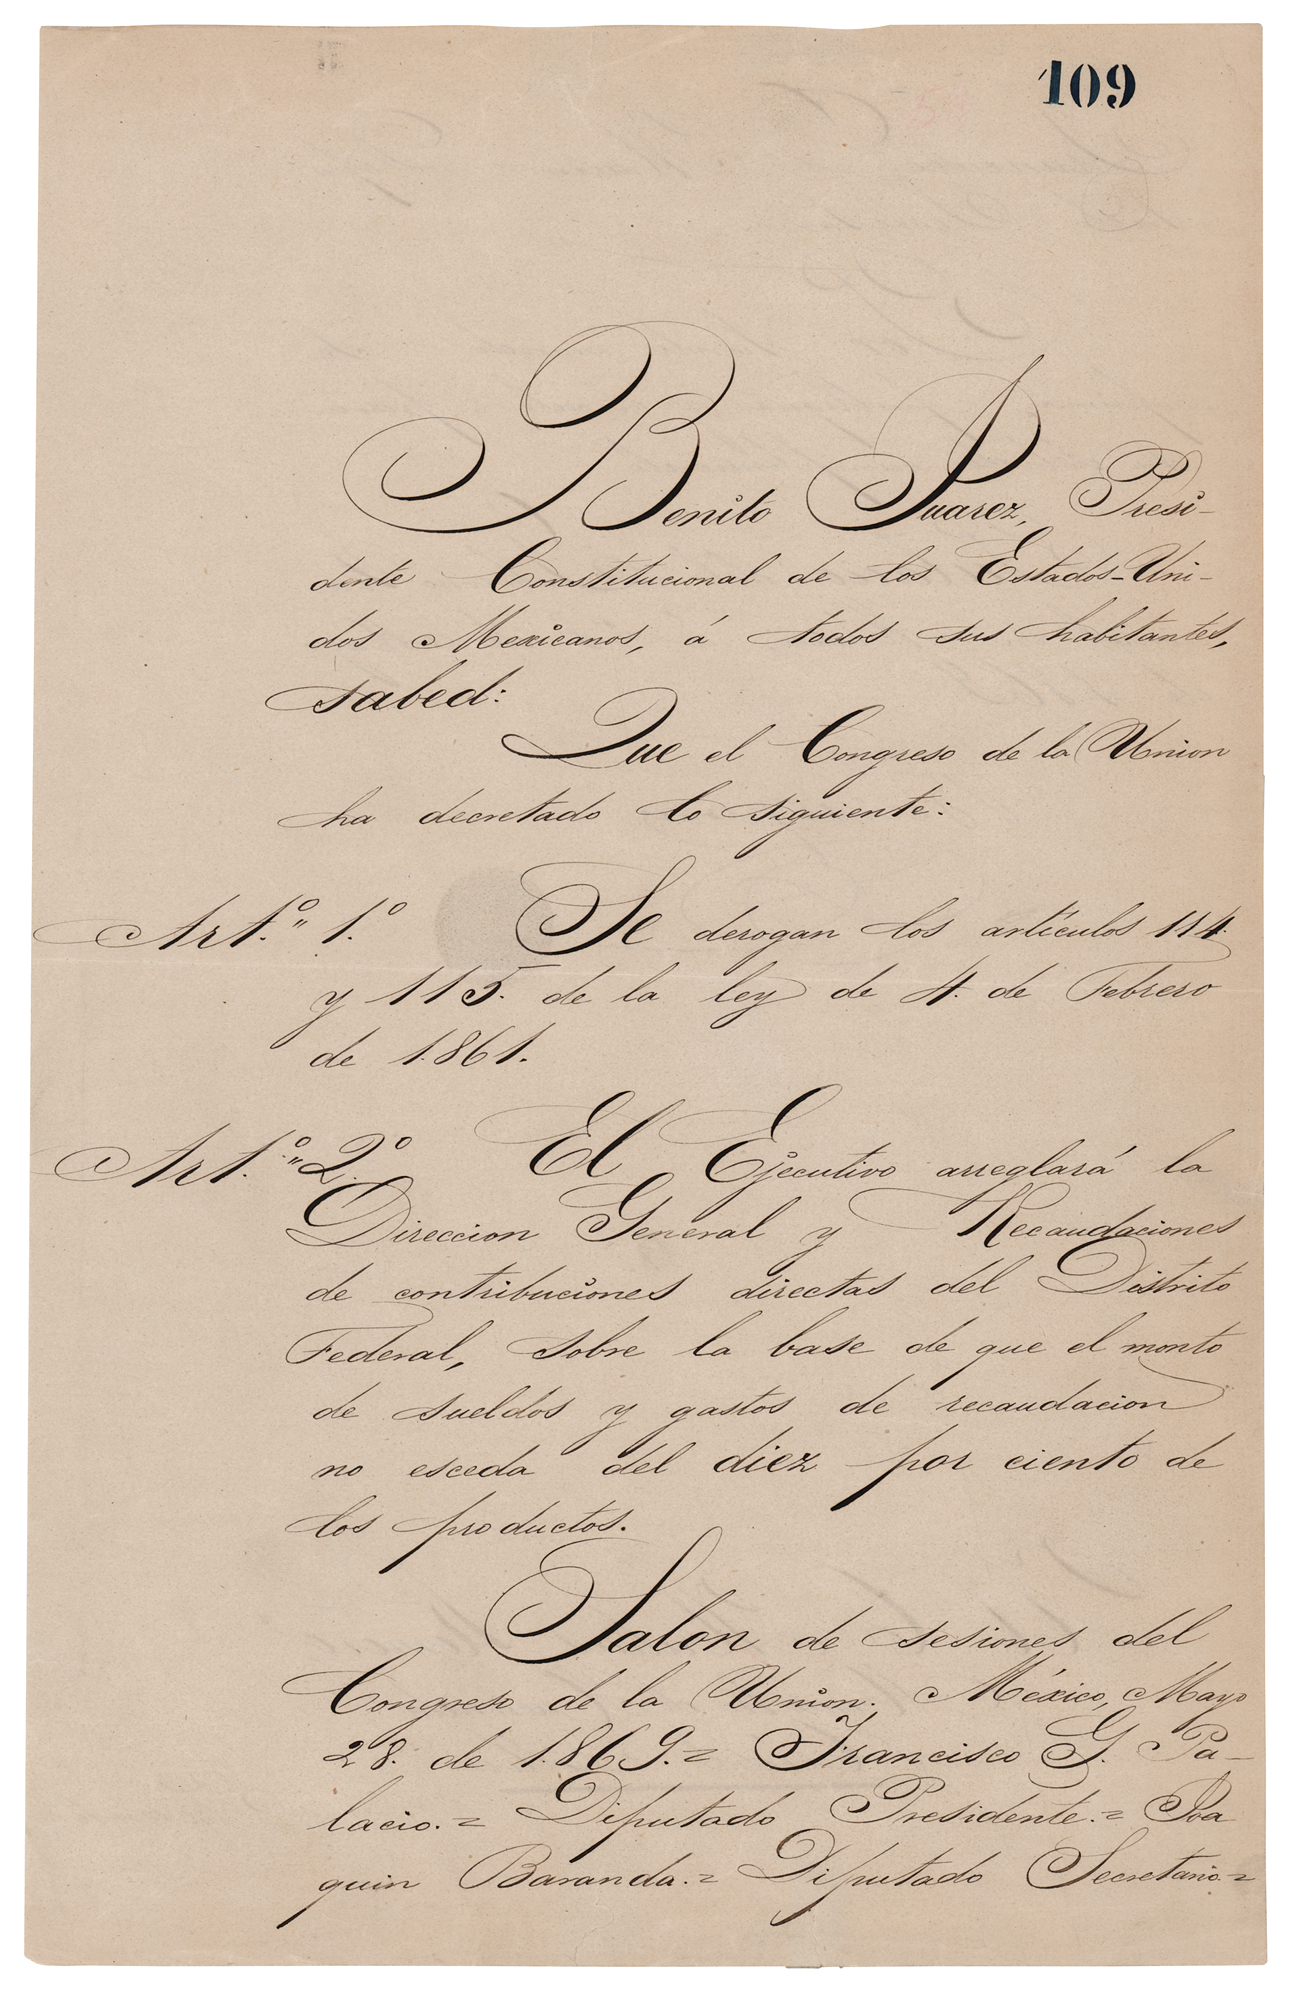 109
Benito Juarez, Presi-
dente Constitucional de los Estados-Uni-
dos Mexicanos, á todos sus habitantes,
sabed:
Que el Congreso de la Union
ha decretado lo siguiente:
Art.º" 1.º Se derogan los artículos 114.
y 115. de la ley de 4. de Febrero
de 1.861.
Art.º" 2.º El Ejecutivo arreglará la
Direccion General y Recaudaciones
de contribuciones directas del Distrito
Federal, sobre la base de que el monto
de sueldos y gastos de recaudacion
no esceda del diez por ciento de
los productos.
Salon de sesiones del
Congreso de la Union. México, Mayo
28. de 1.869.= Francisco G. Pa-
lacio.= Diputado Presidente.= Joa
quin Baranda.= Diputado Secretario.=